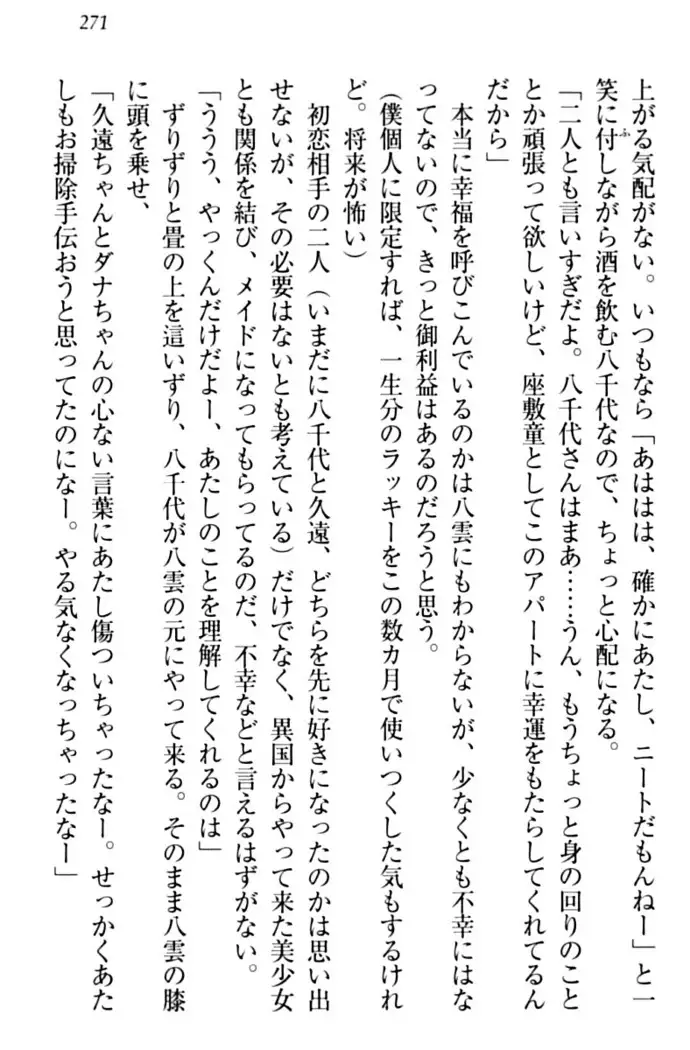 271
上がる気配がない。いつもなら「あははは、確かにあたし、ニートだもんねー」と一
笑に付しながら酒を飲む八千代なので、ちょっと心配になる。
「二人とも言いすぎだよ。八千代さんはまあ……うん、もうちょっと身の回りのこと
とか頑張って欲しいけど、座敷童としてこのアパートに幸運をもたらしてくれてるん
だから」
　本当に幸福を呼びこんでいるのかは八雲にもわからないが、少なくとも不幸にはな
ってないので、きっと御利益はあるのだろうと思う。
（僕個人に限定すれば、一生分のラッキーをこの数カ月で使いつくした気もするけれ
ど。将来が怖い）
　初恋相手の二人（いまだに八千代と久遠、どちらを先に好きになったのかは思い出
せないが、その必要はないとも考えている）だけでなく、異国からやって来た美少女
とも関係を結び、メイドになってもらってるのだ、不幸などと言えるはずがない。
「ううう、やっくんだけだよー、あたしのことを理解してくれるのは」
　ずりずりと畳の上を這いずり、八千代が八雲の元にやって来る。そのまま八雲の膝
に頭を乗せ、
「久遠ちゃんとダナちゃんの心ない言葉にあたし傷ついちゃったなー。せっかくあた
しもお掃除手伝おうと思ってたのになー。やる気なくなっちゃったなー」